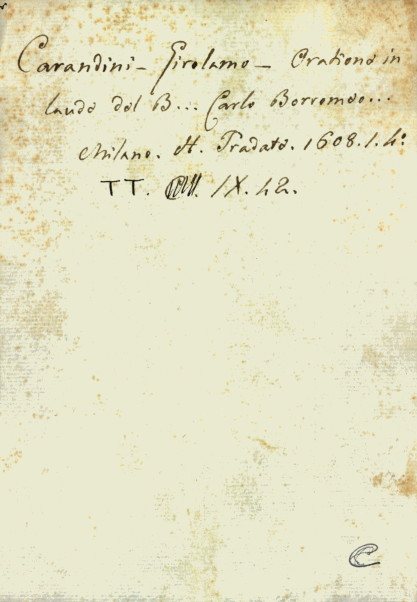 Carandini - Girolamo - Oratione in
laude del B... Carlo Borromeo...
Milano. H. Tradate. 1608. 1. 4º
TT. IX. 42.
C